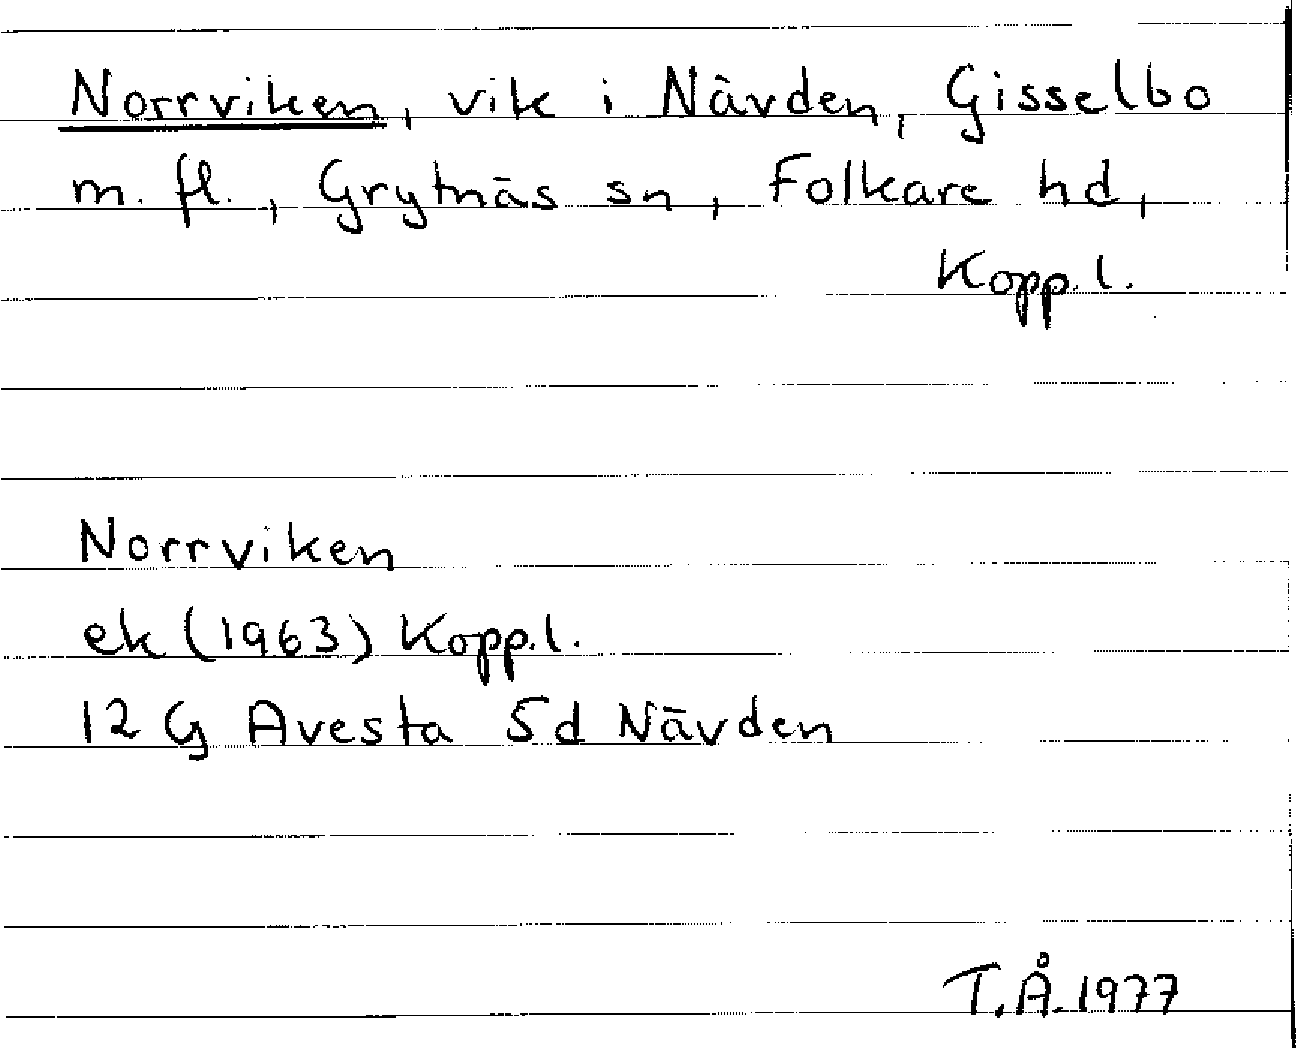 Norrviken, vik i Nävden, Gisselbo
m. fl., Grytnäs sn, Folkare hd,
Kopp. l.
Norrviken
ek (1963) Kopp. l.
12 G Avesta 5d Nävden
T.Å. 1977